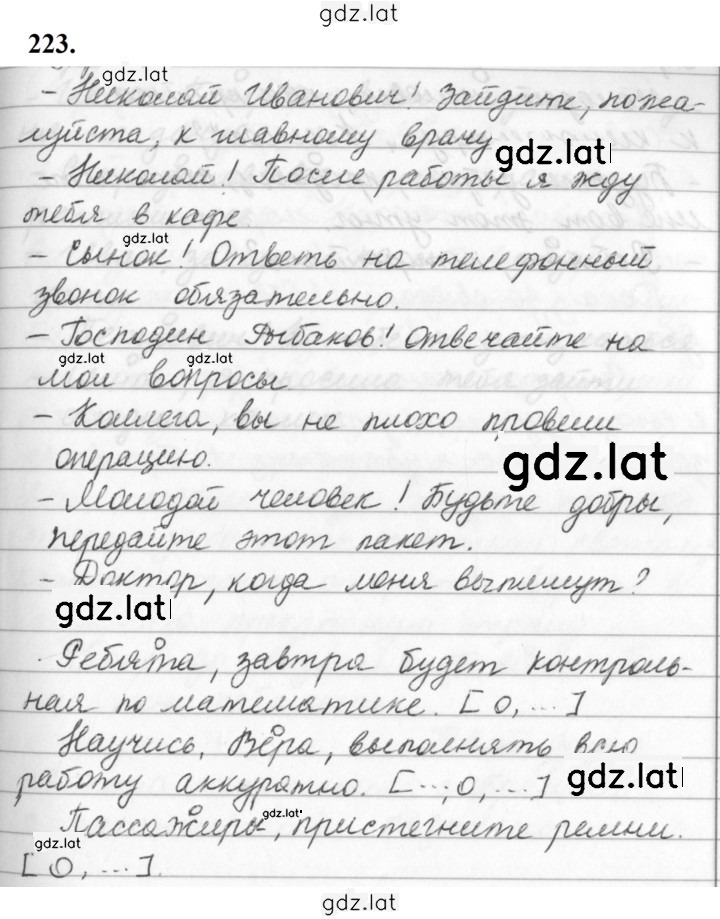 gdz.lat
223.
gdz.lat
- Николай Иванович! Зайдите, пожа-
луйста, к главному врачу
gdz.lat
- Николай! После работы я жду
тебя в кафе.
gdz.lat
- Сынок! Ответь на телефонный
звонок обязательно.
- Господин Рыбаков! Отвечайте на
gdz.lat gdz.lat
мои вопросы
- Коллега, вы не плохо провели
операцию.
gdz.lat
- Молодой человек! Будьте добры,
передайте этот пакет.
- Доктор, когда меня выпишут?
gdz.lat
Ребята, завтра будет контроль-
ная по математике. [ О, ... ]
Научись, Вера, выполнять всю
работу аккуратно. [ ..., О, ... ]
gdz.lat
gdz.lat
Пассажиры, пристегните ремни.
gdz.lat
[ О, ... ].
gdz.lat